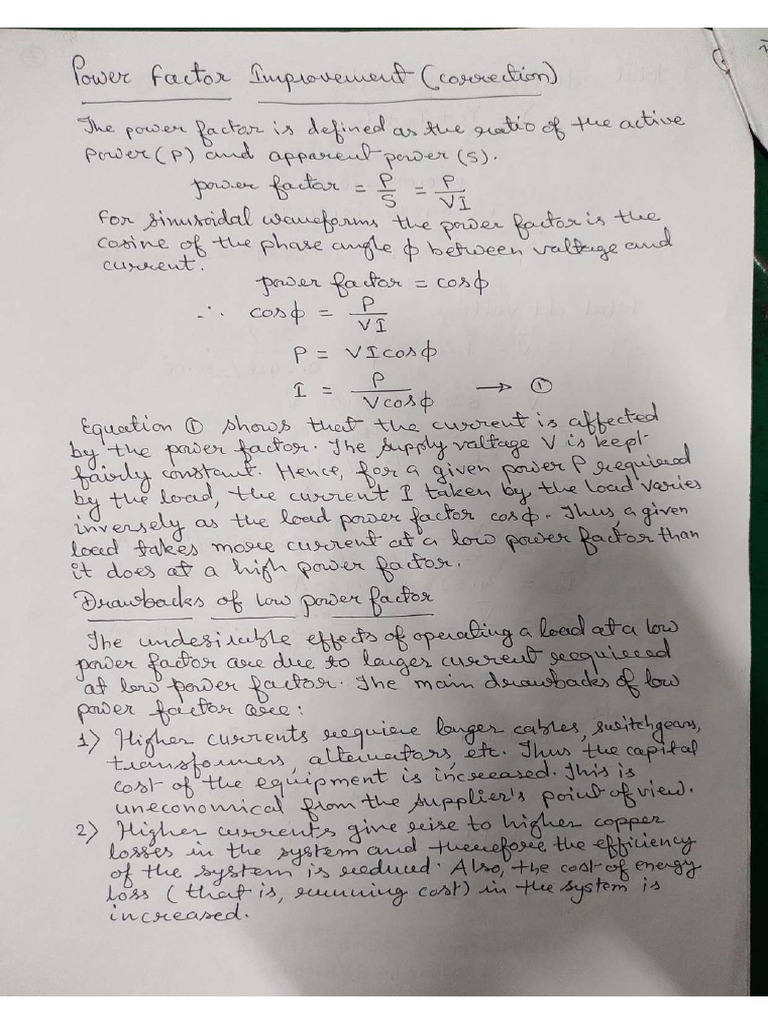 Power Factor Improvement (correction)
The power factor is defined as the ratio of the active
power (P) and apparent power (S).
power factor = P/S = P/VI
For sinusoidal waveforms the power factor is the
cosine of the phase angle ϕ between voltage and
current.
power factor = cosϕ
∴ cosϕ = P/VI
P = VIcosϕ
I = P/Vcosϕ → ①
Equation ① shows that the current is affected
by the power factor. The supply voltage V is kept
fairly constant. Hence, for a given power P required
by the load, the current I taken by the load varies
inversely as the load power factor cosϕ. Thus, a given
load takes more current at a low power factor than
it does at a high power factor.
Drawbacks of low power factor
The undesirable effects of operating a load at a low
power factor are due to larger current required
at low power factor. The main drawbacks of low
power factor are:
1) Higher currents require larger cables, switchgears,
transformers, alternators, etc. Thus the capital
cost of the equipment is increased. This is
uneconomical from the supplier's point of view.
2) Higher currents give rise to higher copper
losses in the system and therefore the efficiency
of the system is reduced. Also, the cost of energy
loss (that is, running cost) in the system is
increased.